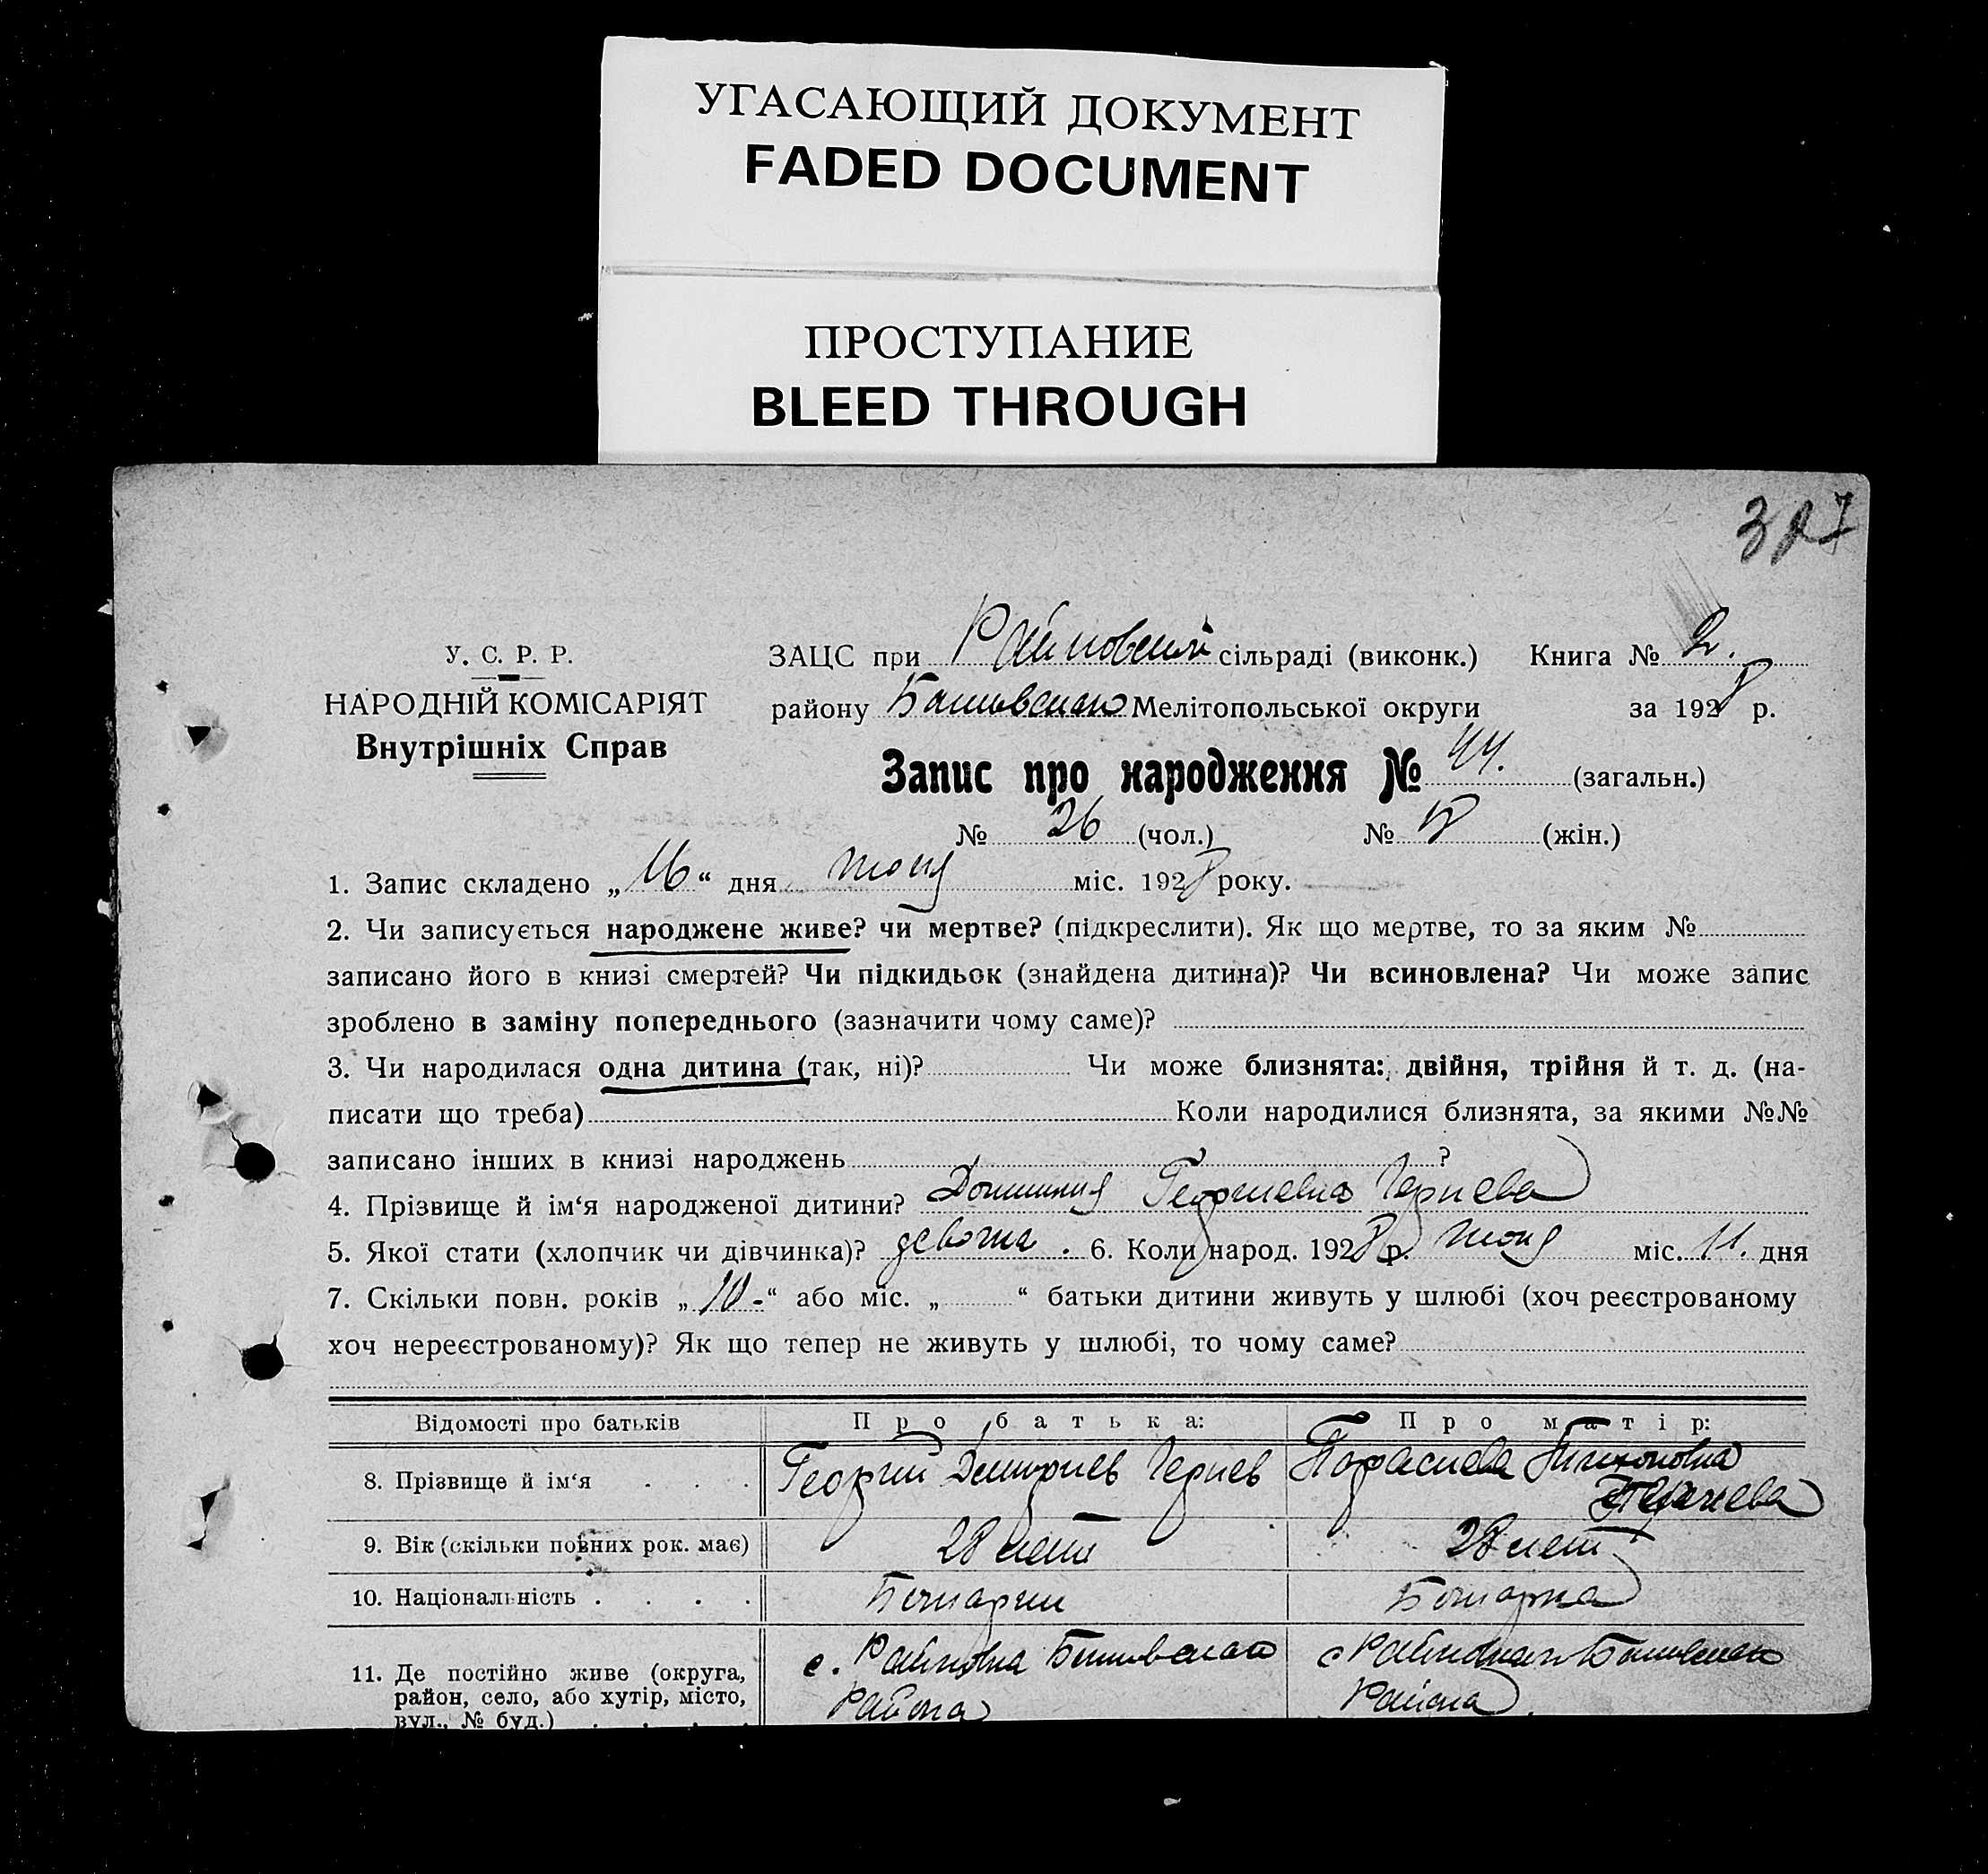 УГАСАЮЩИЙ ДОКУМЕНТ
FADED DOCUMENT
ПРОСТУПАНИЕ
BLEED THROUGH
327
У. С. Р. Р.
НАРОДНІЙ КОМІСАРІЯТ
Внутрішніх Справ
ЗАЦС при Райновской сільраді (виконк.) Книга № 2.
району Мелітопольської округи за 1928 р.
Запис про народження № 44. (загальн.)
№ 26 (чол.) № (жін.)
1. Запис складено „16“ дня июня міс. 1928 року.
2. Чи записується народжене живе? чи мертве? (підкреслити). Як що мертве, то за яким №
записано його в книзі смертей? Чи підкидьок (знайдена дитина)? Чи всиновлена? Чи може запис
зроблено в заміну попереднього (зазначити чому саме)?
3. Чи народилася одна дитина (так, ні)? Чи може близнята: двійня, трійня й т. д. (на-
писати що треба) Коли народилися близнята, за якими №№
записано інших в книзі народжень ?
4. Прізвище й ім‘я народженої дитини? Георгиевна Чернева
5. Якої стати (хлопчик чи дівчинка)? девочка. 6. Коли народ. 1928 р. июня міс. 11. дня
7. Скільки повн. років „10-“ або міс. „ “ батьки дитини живуть у шлюбі (хоч реєстрованому
хоч нереєстрованому)? Як що тепер не живуть у шлюбі, то чому саме?
Відомості про батьків Про батька: Про матір:
8. Прізвище й ім‘я . . . Георгий Дмитриев Чернев Парасиева Тихоновна
Чернева
9. Вік (скільки повних рок. має) 28 лет 28 лет
10. Національність . . . . Болгарин Болгарка
11. Де постійно живе (округа, с. Райновка с
район, село, або хутір, місто, района района
вул., № буд.) . . . .